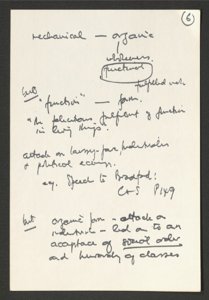 (6)
mechanical — organic
wholeness
functional
fulfilled
(but)
"function" — form.
"the felicitous fulfilment of function
in living things".
attack on laissez-faire, industrialism
& political economy.
eg. Speech to Bradford:
C+S P149
but organic form — attack on
industrialism — led on to an
acceptance of social order
and hierarchy of classes